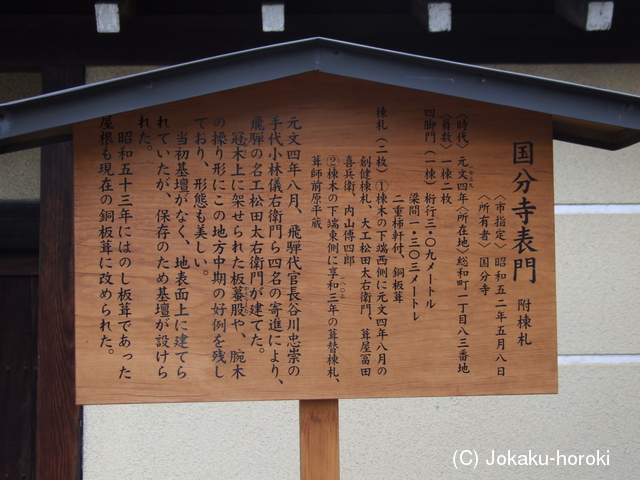 国分寺表門 附棟札
〈市指定〉昭和五二年五月八日
〈所有者〉国分寺
〈時代〉元文四年〈所在地〉総和町一丁目八三番地
〈員数〉一棟二枚
四脚門（一棟）桁行三・〇九メートル
梁間一・三〇三メートル
二重柿軒付、銅板葺
棟札（二枚）①棟木の下端西側に元文四年八月の
創健棟札、大工松田太右衛門、葺屋冨田
喜兵衛、内山博四郎
②棟木の下端東側に享和三年の葺替棟札、
葺師前原平蔵
元文四年八月、飛騨代官長谷川忠崇の
手代小林儀右衛門ら四名の寄進により、
飛騨の名工松田太右衛門が建てた。
冠木上に架せられた板蟇股や、腕木
の操り形にこの地方中期の好例を残し
ており、形態も美しい。
当初基壇がなく、地表面上に建てら
れていたが、保存のため基壇が設けら
れた。
昭和五十三年にはのし板葺であった
屋根も現在の銅板葺に改められた。
(C) Jokaku-horoki